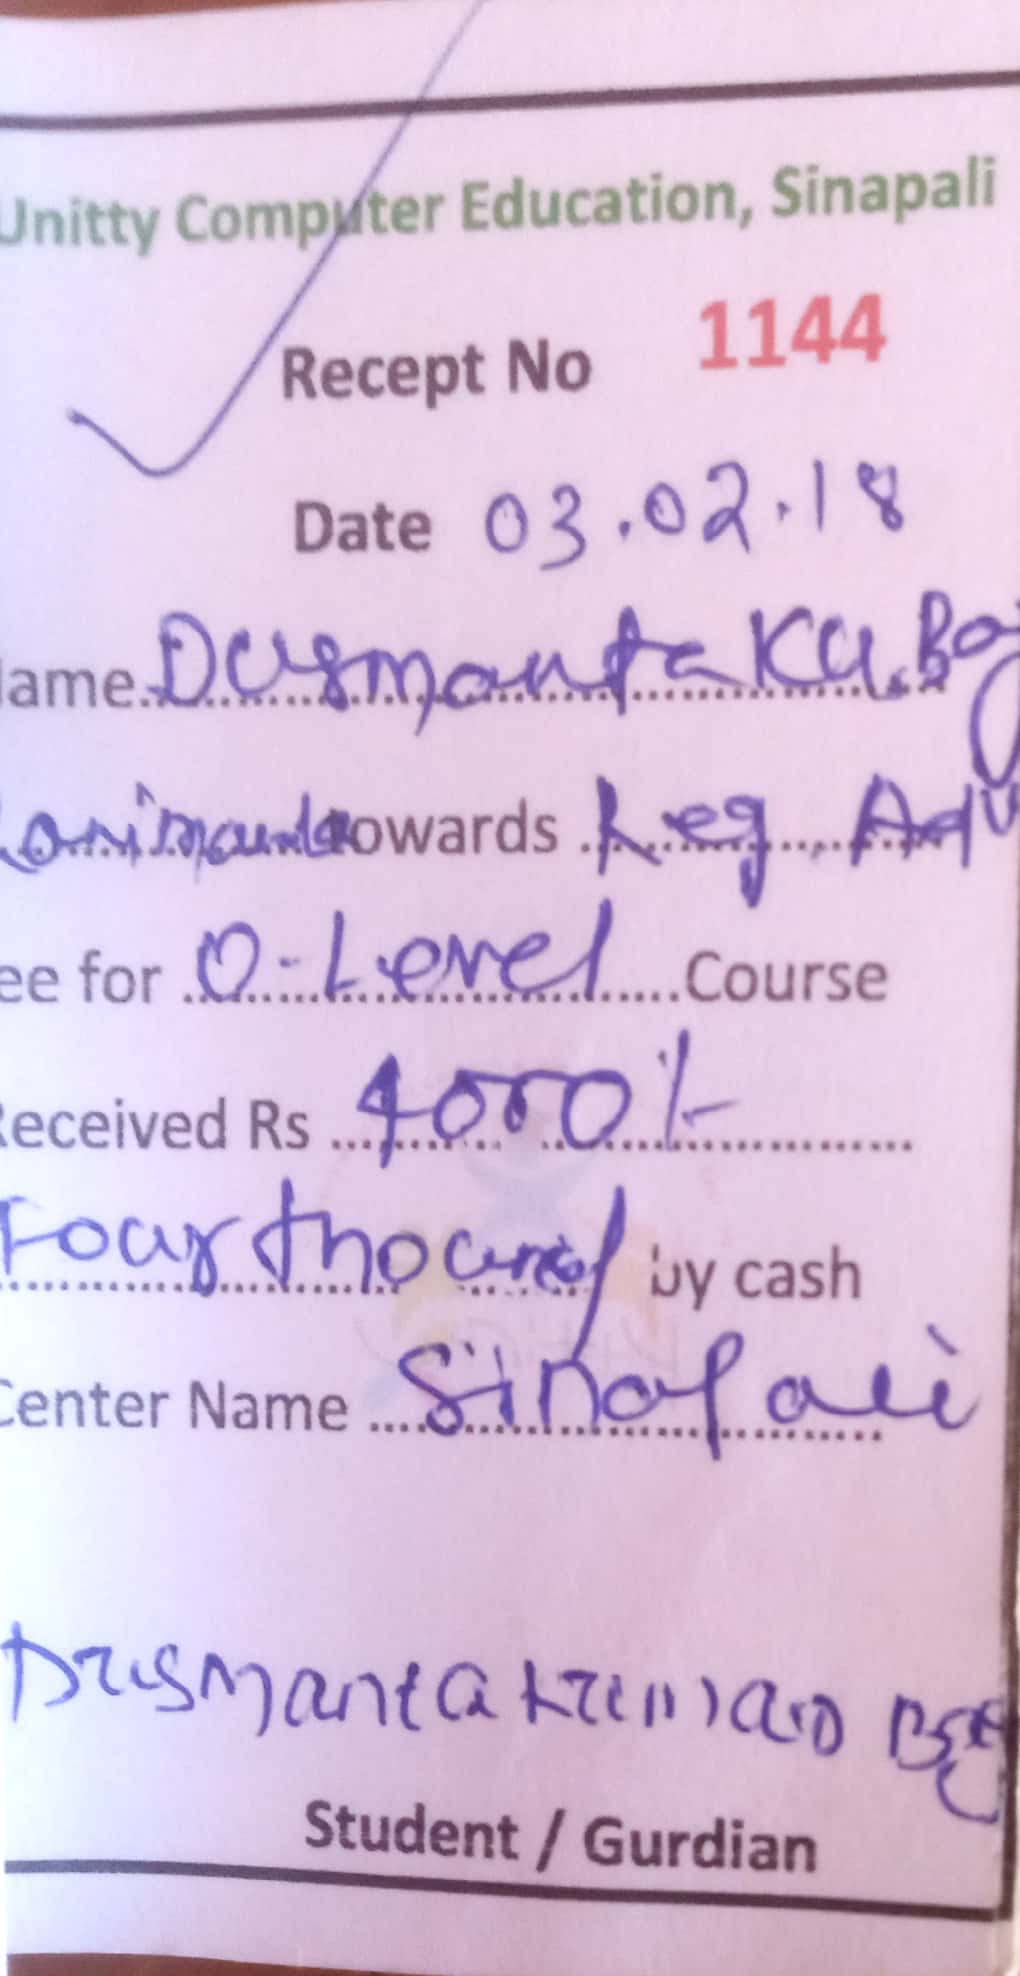 Unitty Computer Education, Sinapali
Recept No 1144
Date 03.02.18
Name Dusmanta Ku. Bag
towards Reg, Adv
ee for O-Level Course
Received Rs 4000/-
Four thound by cash
Center Name Sinapali
Dusmanta Kumar Bag
Student / Gurdian